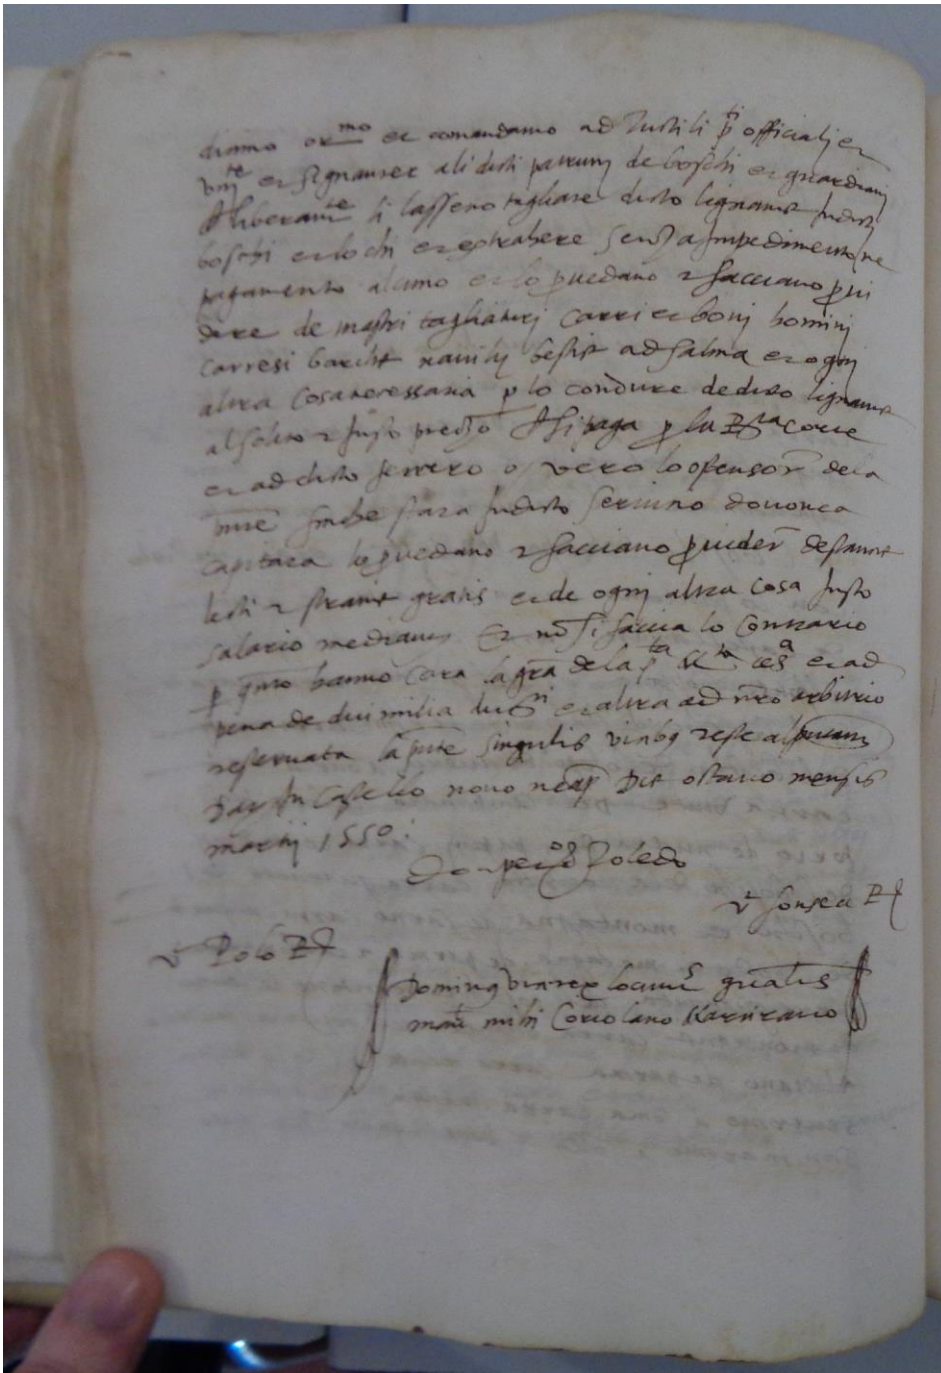 dicimo or.mo et comandamo ad Tucti li p.ti officialj et
Univ.te et signanter ali dicti patruni de boschi et guardianj
liberam.te li lasseno tagliare dicto lignamе in dicti
boschi et lochi et extrahere senza impedimento ne
pagamento alcuno et lo provedano et facciano provi
dere de mastri tagliaturj carri et bovi hominj
carresi barche navilij bestie ad salma et ognj
altra cosa necessaria p lo condure de dicto lignamе
al solito et justo prezo che si paga p la R.ta corte
et ad dicto ferrero o, vero lo spensor de la
mentre che stara in dicto servitio dovonca
capitara lo provedano et facciano provider de stantie
lecti et strame gratis et de ognj altra cosa justo
salario mediante Et no si faccia lo contrario
p q.nto hanno cara la gra de la p.ta Ces.a et ad
pena de dui milia duc.ti et altra ad nro arbitrio
reservata la p.nte singulis vicibus reste al p.ntante
Dat In Castello novo neap Die octavo mensis
martij 1550.
Don pedro de Toledo
V.t fonseca R.s
V.t Polo R.s
Dominus vicerex locumt. g.nalis
man.t mihi Coriolano Martirano